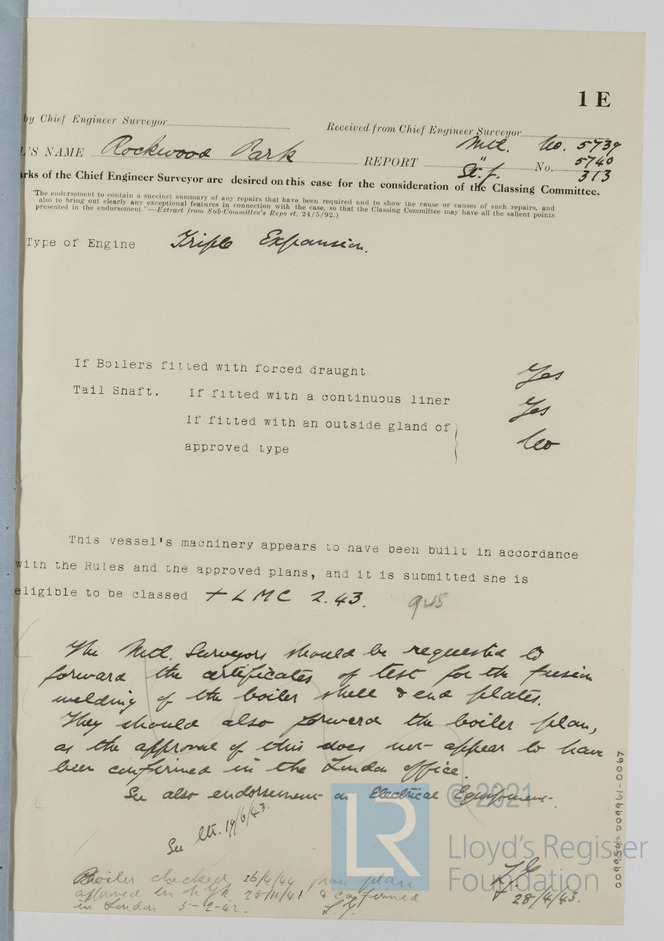 1 E
by Chief Engineer Surveyor
Received from Chief Engineer Surveyor
L'S NAME Rockwood Park REPORT Mtl. No. 5739
" No. 5740
St. J. 313
arks of the Chief Engineer Surveyor are desired on this case for the consideration of the Classing Committee.
"The endorsement to contain a succinct summary of any repairs that have been required and to show the cause or causes of such repairs, and
also to bring out clearly any exceptional features in connection with the case, so that the Classing Committee may have all the salient points
presented in the endorsement."—Extract from Sub-Committee's Report. 24/5/92.)
Type of Engine Triple Expansion.
If Boilers fitted with forced draught Yes
Tail Shaft. If fitted with a continuous liner Yes
If fitted with an outside gland of
approved type No
This vessel's machinery appears to have been built in accordance
with the Rules and the approved plans, and it is submitted she is
eligible to be classed + LMC 2.43.
The Mtl. Surveyors should be requested to
forward the certificates of test for the fusion
welding of the boiler shell & end plates.
They should also forward the boiler plan,
as the approval of this does not appear to have
been confirmed in the London office.
See also endorsement on Electrical Equipment.
See ltr. 19/6/43.
Boiler checked 26/4/44 from plan
approved in N.Y. 25/11/41 & confirmed
in London 5-2-42.
28/4/43.
© 2021
LR
Lloyd's Register
Foundation
009954-009961-0067